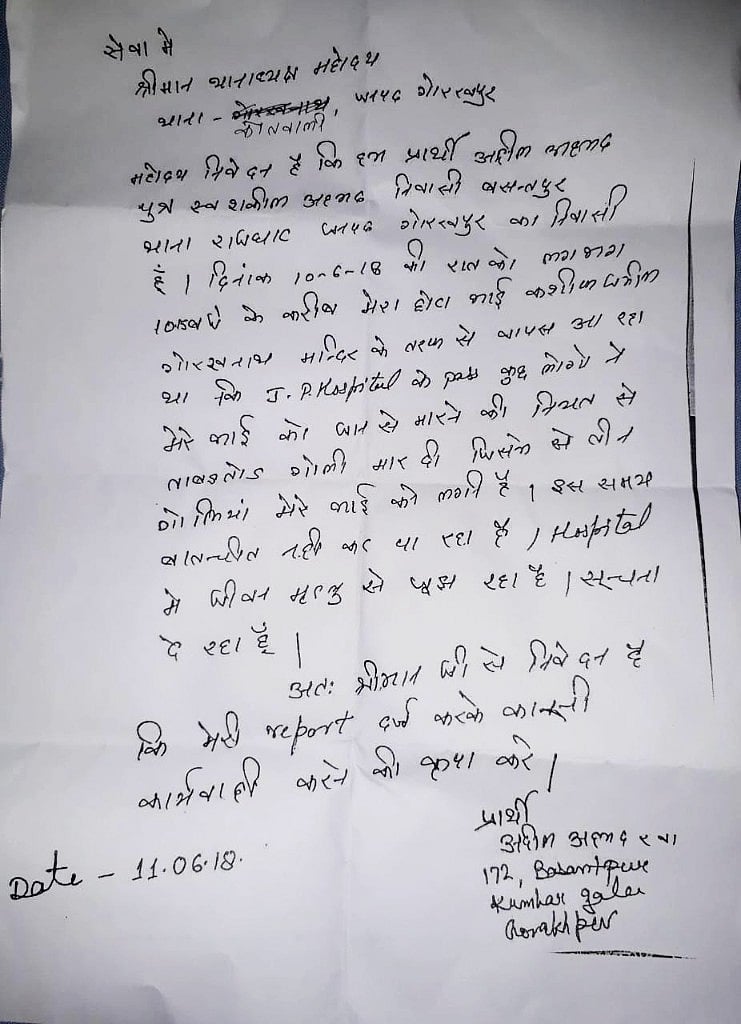 सेवा मे
श्रीमान थानाध्यक्ष महोदय
थाना - गोरखनाथ, जनपद गोरखपुर
कोतवाली
महोदय निवेदन है कि हम प्रार्थी अदील अहमद
पुत्र स्व शकील अहमद निवासी बसन्तपुर
थाना राजघाट जनपद गोरखपुर का निवासी
हूँ । दिनांक 10-6-18 की रात को लगभग
बजे के करीब मेरा छोटा भाई कशीफ जमील
गोरखनाथ मन्दिर के तरफ से वापस आ रहा
था कि J.P. Hospital के pass कुछ लोगो ने
मेरे भाई को जान से मारने की नियत से
ताबड़तोड़ गोली मार दी जिसमे से तीन
गोलियां मेरे भाई को लगी है । इस समय
बातचीत नही कर पा रहा है । Hospital
मे जीवन मृत्यु से जूझ रहा है । सूचना
दे रहा हूँ ।
अतः श्रीमान जी से निवेदन है
कि मेरी report दर्ज करके कानूनी
कार्यवाही करने की कृपा करे ।
प्रार्थी
अदील अहमद
172, Basantpur
Kumhar
Gorakhpur
Date - 11.06.18.